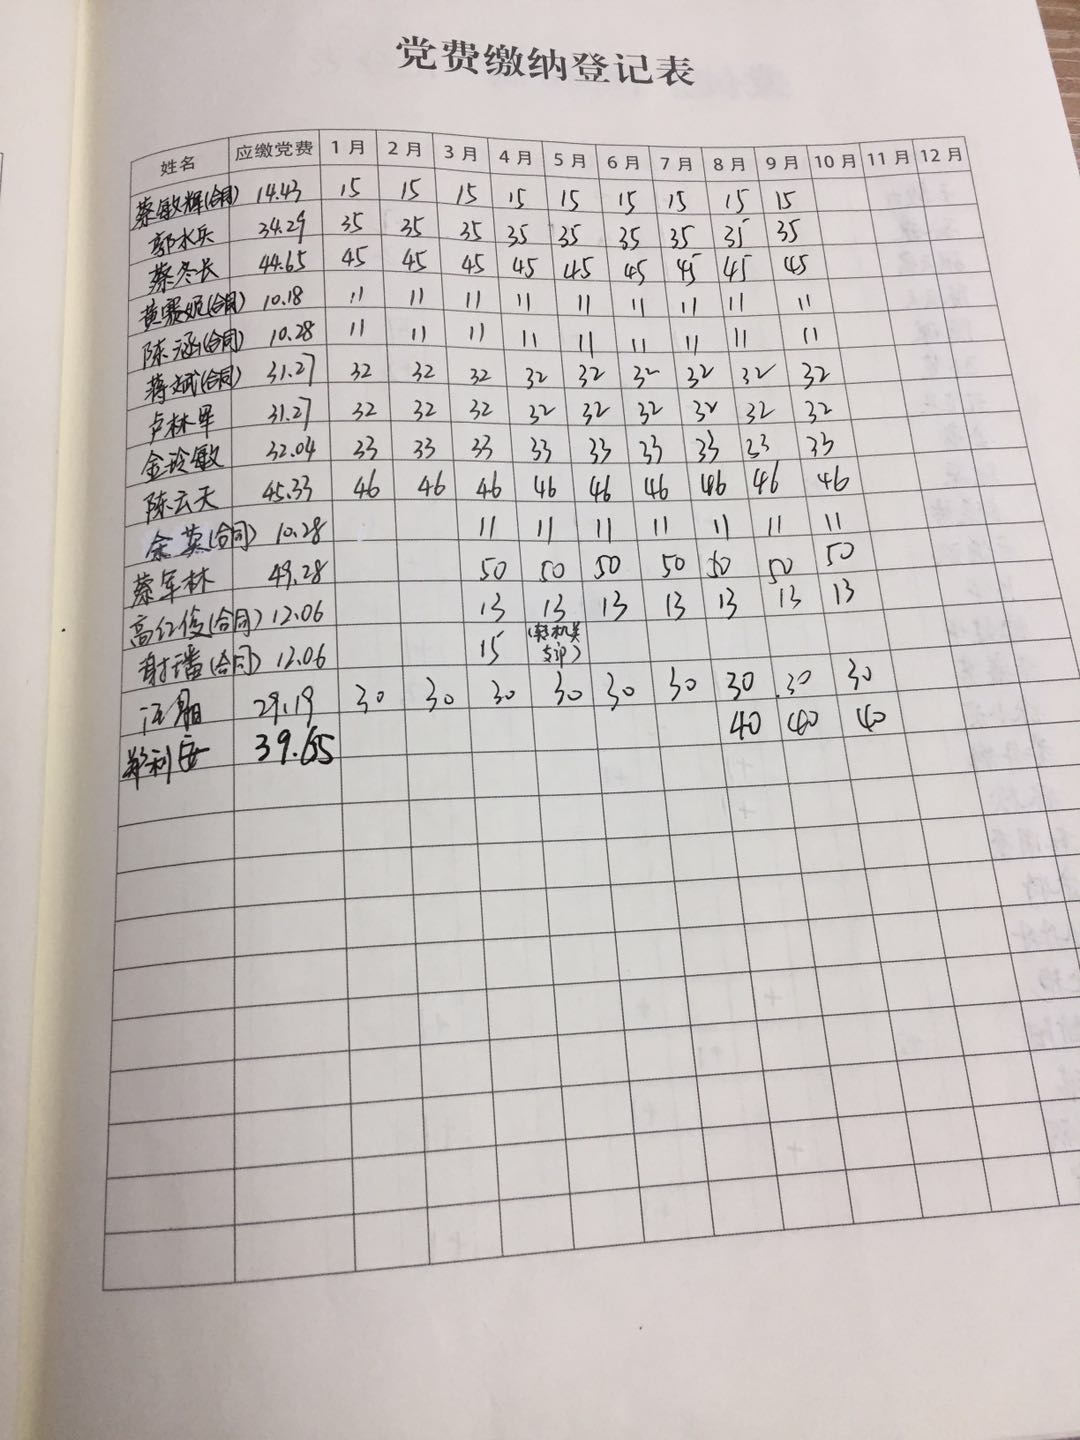 党费缴纳登记表
姓名 应缴党费 1月 2月 3月 4月 5月 6月 7月 8月 9月 10月 11月 12月
蔡敏辉(合同) 14.43 15 15 15 15 15 15 15 15 15
郭水兵 34.29 35 35 35 35 35 35 35 35 35
蔡冬长 44.65 45 45 45 45 45 45 45 45 45
黄赛娘(合同) 10.18 11 11 11 11 11 11 11 11 11
陈涵(合同) 10.28 11 11 11 11 11 11 11 11 11
蒋斌(合同) 31.27 32 32 32 32 32 32 32 32 32
卢林军 31.27 32 32 32 32 32 32 32 32 32
金玲敏 32.04 33 33 33 33 33 33 33 33 33
陈云天 45.33 46 46 46 46 46 46 46 46 46
余英(合同) 10.28 11 11 11 11 11 11 11
蔡军林 49.28 50 50 50 50 50 50 50
高红俊(合同) 12.06 13 13 13 13 13 13 13
谢璠(合同) 12.06 15 (转机关支部)
汪 29.19 30 30 30 30 30 30 30 30 30
郑利 39.65 40 40 40